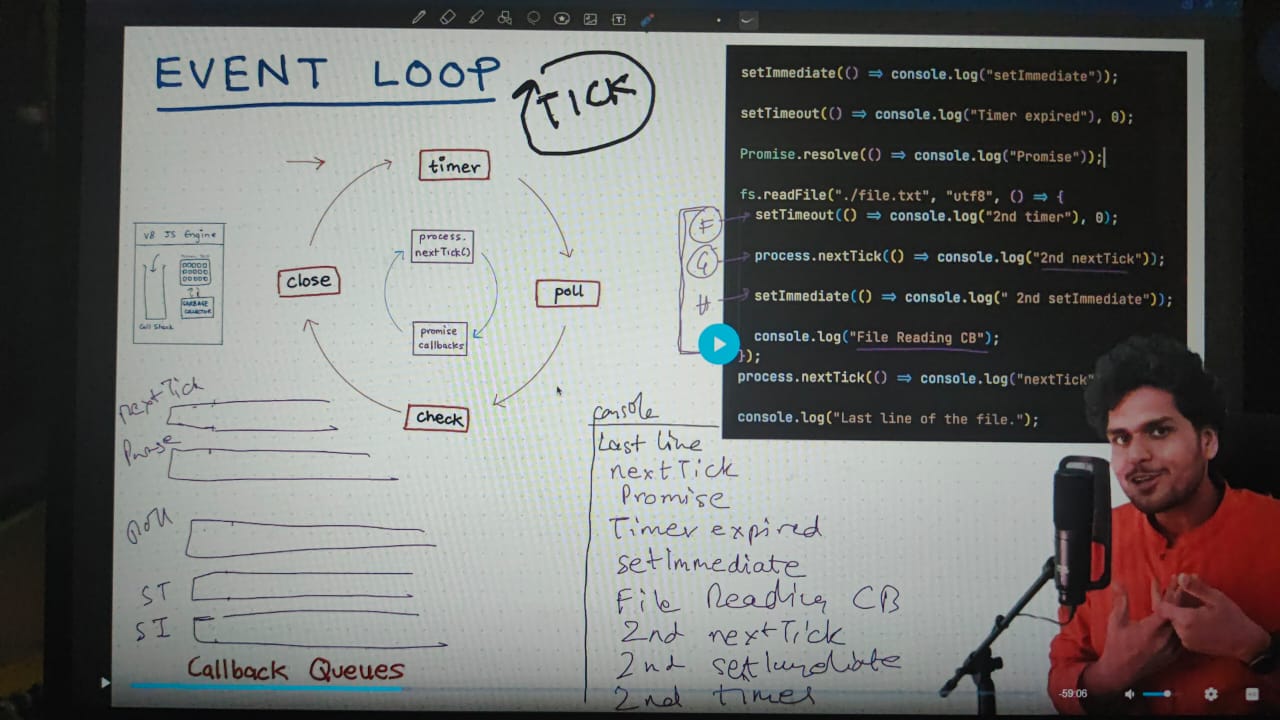 EVENT LOOP
TICK
timer
process.
nextTick()
poll
promise
callbacks
check
close
V8 JS Engine
GARBAGE
COLLECTOR
Call Stack
setImmediate(() => console.log("setImmediate"));
setTimeout(() => console.log("Timer expired"), 0);
Promise.resolve(() => console.log("Promise"));
fs.readFile("./file.txt", "utf8", () => {
setTimeout(() => console.log("2nd timer"), 0);
process.nextTick(() => console.log("2nd nextTick"));
setImmediate(() => console.log(" 2nd setImmediate"));
console.log("File Reading CB");
});
process.nextTick(() => console.log("nextTick"
console.log("Last line of the file.");
F
G
H
nextTick
Poll
ST
SI
Callback Queues
Console
Last line
nextTick
Promise
Timer expired
setImmediate
File Reading CB
2nd nextTick
2nd setImmediate
2nd timer
-59:06